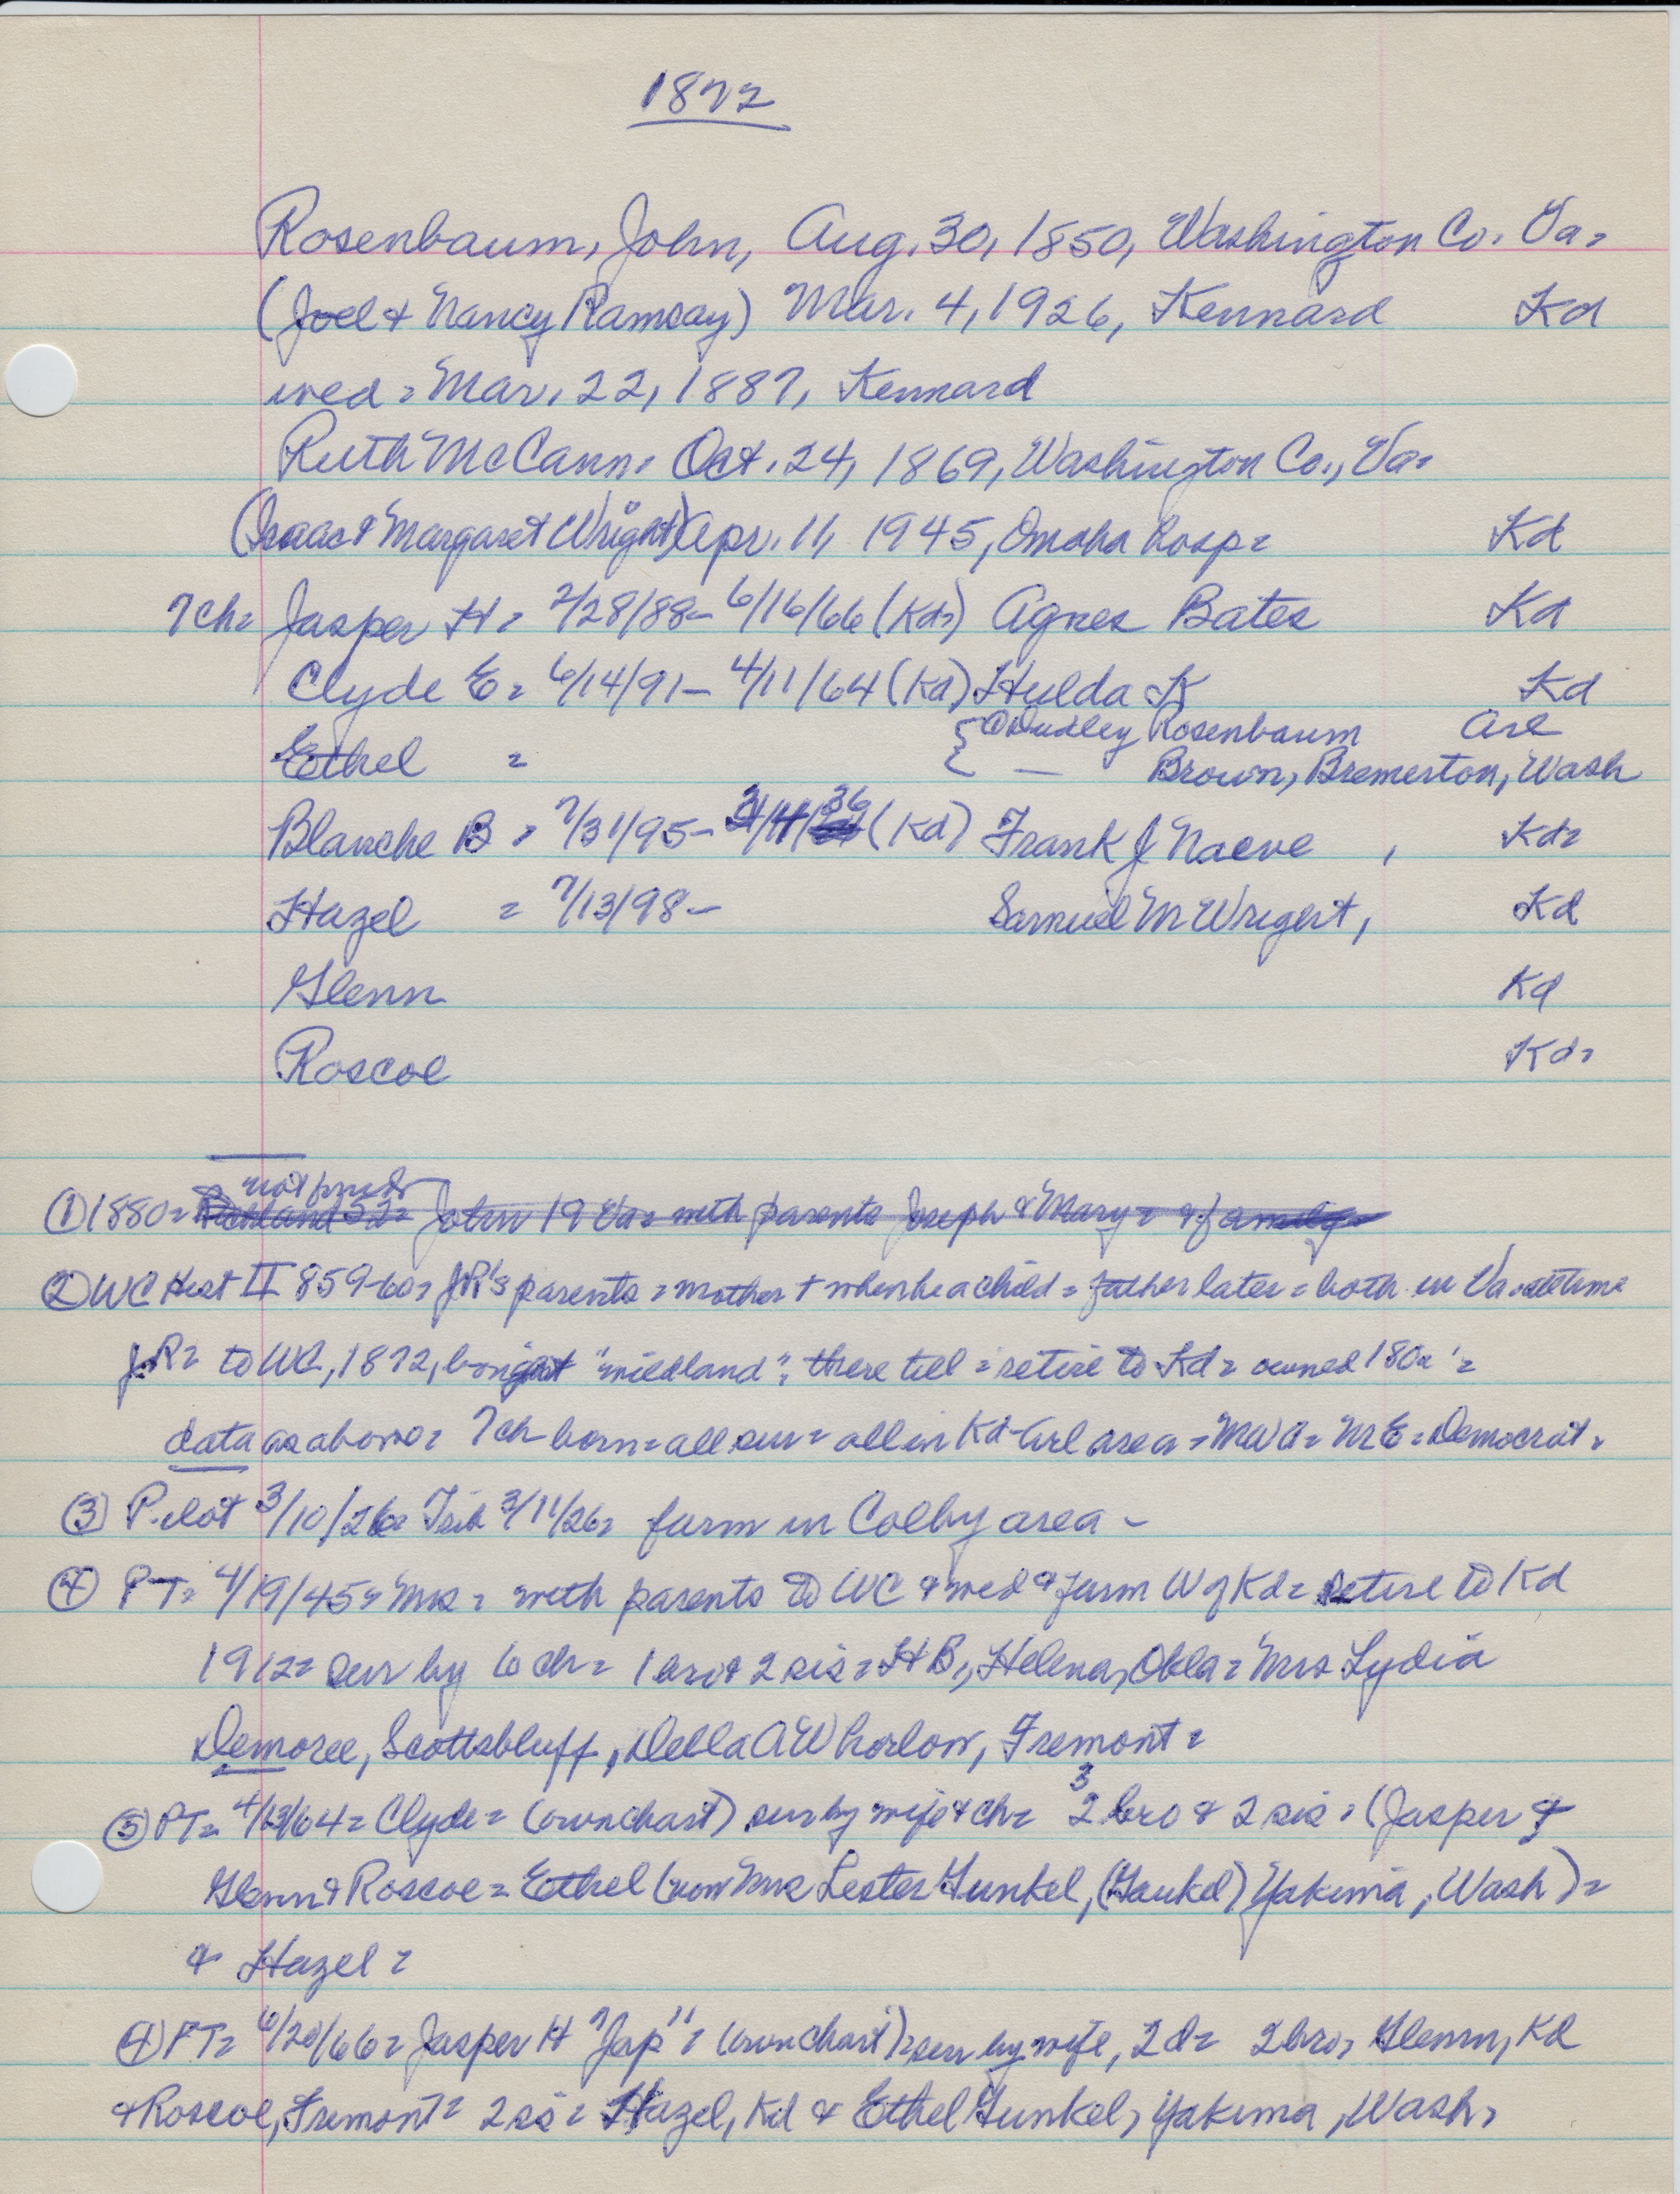 1872
Rosenbaum, John, Aug. 30, 1850, Washington Co. Va =
(Joel & Nancy Ramsay) Mar. 4, 1926, Kennard Kd
wed = Mar. 22, 1887, Kennard
Ruth McCann = Oct. 24, 1869, Washington Co., Va =
(Isaac & Margaret Wright) Apr. 11, 1945, Omaha hosp = Kd
7 ch = Jasper H = 2/28/88 - 6/16/66 (Kd) Agnes Bates Kd
Clyde E = 6/14/91 - 4/11/64 (Kd) Hulda K Kd
Ethel = { @ Dudley Rosenbaum Arl
— Brown, Bremerton, Wash
Blanche B = 7/31/95 - 3/11/36 (Kd) Frank J Naeve , Kd =
Hazel = 7/13/98 - Samuel M Wright, Kd
Glenn Kd
Roscoe Kd =
not found
① 1880 = Richland 52 = John 19 Va = with parents Joseph & Mary = & family
② WC Hist II 859-60 = JR's parents = mother + when he a child = father later = both in Va all time
JR = to WC, 1872, bought "wildland", there till = retire to Kd = owned 180a' =
data as above = 7 ch born = all sur = all in Kd-Arl area = MWA = ME = Democrat =
③ Pilot 3/10/26 = Trib 3/11/26 = farm in Colby area -
④ PT = 4/19/45 = Mrs = with parents to WC & wed & farm W of Kd = retire to Kd
1912 = sur by 6 ch = 1 bro & 2 sis = H B, Helena, Okla = Mrs Lydia
Demoree, Scottsbluff, Della A Whorlow, Fremont =
⑤ PT = 4/23/64 = Clyde = (own chart) sur by wife & ch = 3 2 bro & 2 sis = (Jasper &
Glenn & Roscoe = Ethel (now Mrs Lester Gunkel, (Gaukel) Yakima, Wash) =
& Hazel =
④ PT = 6/20/66 = Jasper H "Jap" = (own chart) = sur by wife, 2 d = 2 bro, Glenn, Kd
& Roscoe, Fremont = 2 sis = Hazel, Kd & Ethel Gunkel, Yakima, Wash,